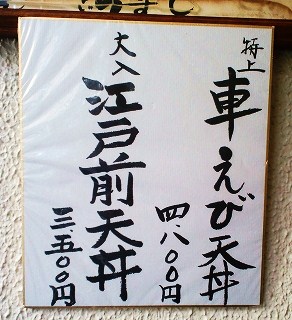 特上
車えび天丼
四、八〇〇円
大入
江戸前天丼
三、五〇〇円